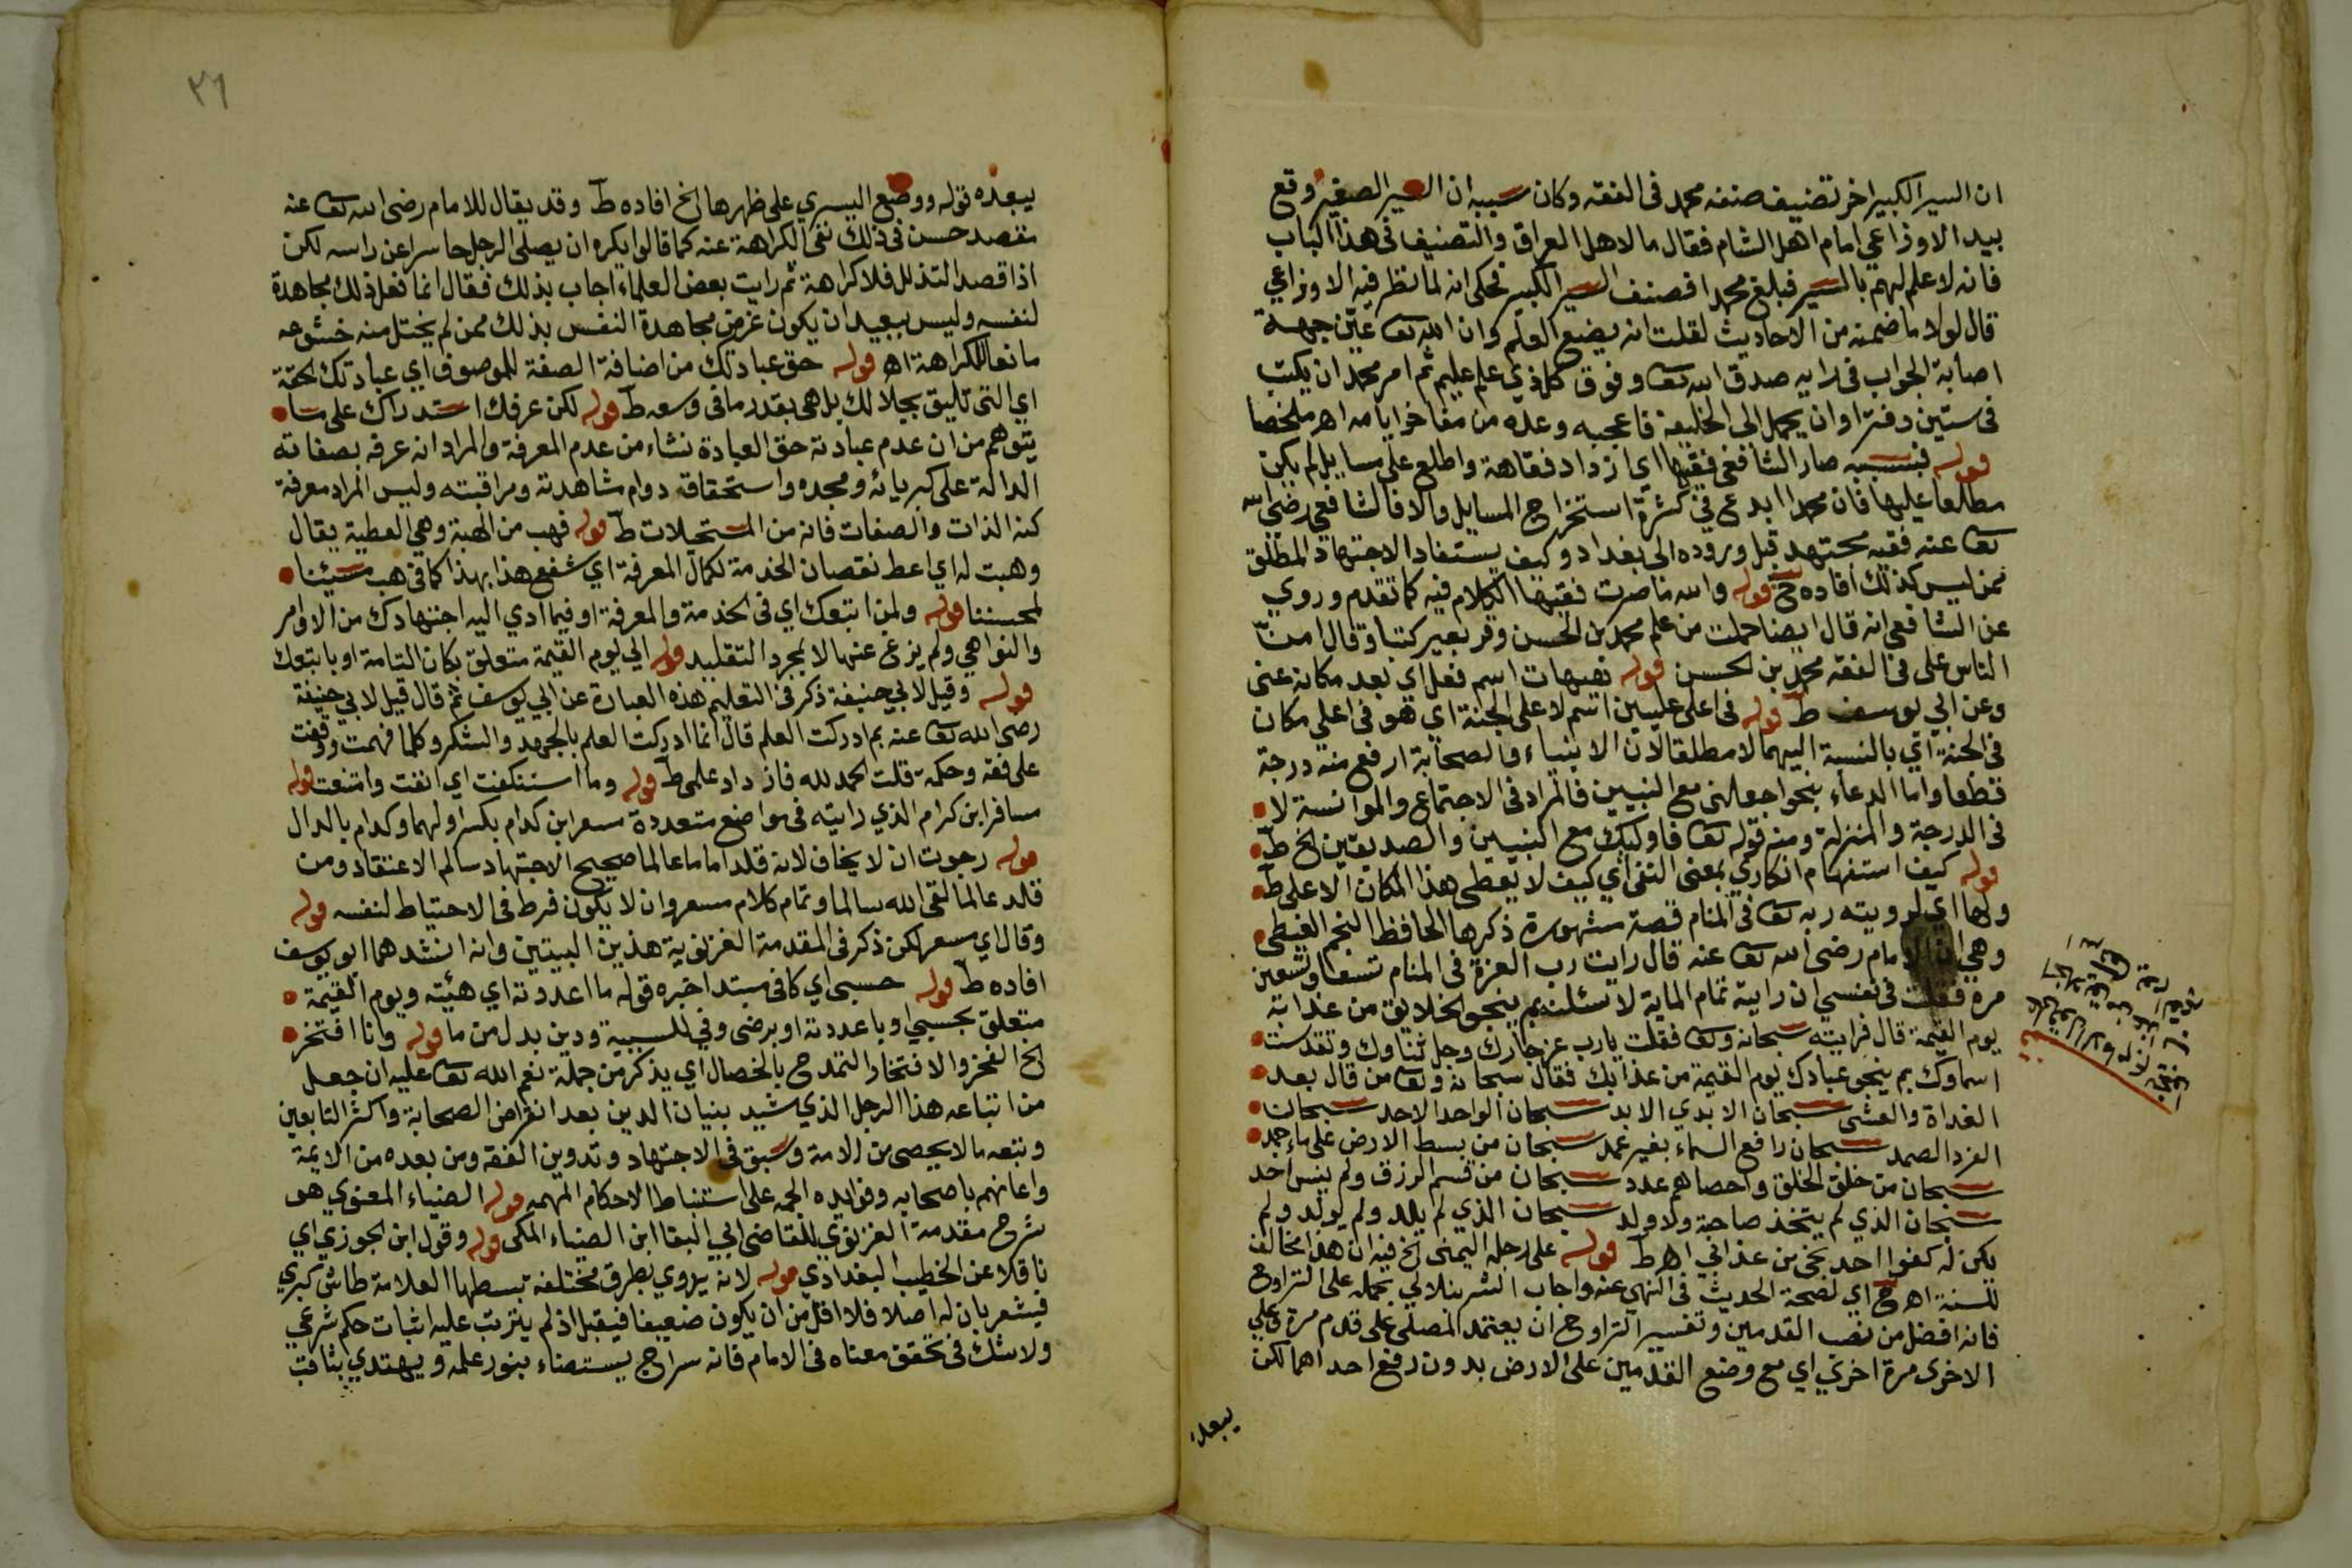 ان السير الكبير اخر تصنيف صنفه محمد في الفقه وكان سببه ان السير الصغير وقع
بيد الاوزاعي امام اهل الشام فقال ما لاهل العراق والتصنيف في هذا الباب
فانه لا علم لهم بالسير فبلغ محمدا فصنف السير الكبير فحكى انه لما نظر فيه الاوزاعي
قال لولا ما ضمنه من الاحاديث لقلت انه يضع العلم وان الله تعا عين جهة
اصابة الجواب في رايه صدق الله تعا وفوق كل ذي علم عليم ثم امر محمد ان يكتب
في ستين دفترا وان يحمل الى الخليفة فاعجبه وعده من مفاخر ايامه اهـ ملخصا
قوله فبسببه صار الشافعي فقيها اي ازداد فقاهة واطلع على مسايل لم يكن
مطلعا عليها فان محمدا ابدع في كثرة استخراج المسايل والا فالشافعي رضي الله
تعا عنه فقيه مجتهد قبل وروده الى بغداد وكيف يستفاد الاجتهاد المطلق
ممن ليس كذلك افاده ح قوله والله ما صرت فقيها الكلام فيه كما تقدم وروي
عن الشافعي انه قال ايضا حملت من علم محمد بن الحسن وقر بعير كتبا وقال امن
الناس علي في الفقه محمد بن الحسن قوله هيهات اسم فعل اي بعد مكانه عني
وعن ابي يوسف ط قوله في اعلى عليين اسم لاعلى الجنة اي هو في اعلى مكان
في الجنة اي بالنسبة اليهما لا مطلقا لان الانبياء والصحابة ارفع منه درجة
قطعا واما الدعاء بنحو اجعلني مع النبيين فالمراد في الاجتماع والموانسة لا
في الدرجة والمنزلة ومنه قوله تعا فاوليك مع النبيين والصديقين الخ ط
قوله كيف استفهام انكاري بمعنى النفي اي كيف لا يعطى هذا المكان الاعلى ط
ولها اي لرويته ربه تعا في المنام قصة مشهورة ذكرها الحافظ النجم الغيطي
وهي ان الامام رضي الله تعا عنه قال رايت رب العزة في المنام تسعا وتسعين
مرة فقلت في نفسي ان رايته تمام الماية لاسئلنه بم ينجو الخلايق من عذابه
يوم القيمة قال فرايته سبحانه وتعا فقلت يارب عز جارك وجل ثناوك وتقدست
اسماوك بم ينجو عبادك يوم القيمة من عذابك فقال سبحانه وتعا من قال بعد
الغداة والعشي سبحان الابدي الابد سبحان الواحد الاحد سبحان
الفرد الصمد سبحان رافع السماء بغير عمد سبحان من بسط الارض على ماء جمد
سبحان من خلق الخلق واحصاهم عدد سبحان من قسم الرزق ولم ينس احد
سبحان الذي لم يتخذ صاحبة ولا ولد سبحان الذي لم يلد ولم يولد ولم
يكن له كفوا احد نجى من عذابي اهـ ط قوله على رجله اليمنى الخ فيه ان هذا مخالف
للسنة اهـ ح اي لصحة الحديث في النهي عنه واجاب الشرنبلالي بحمله على التراوح
فانه افضل من نصب القدمين وتفسير التراوح ان يعتمد المصلي على قدم مرة وعلى
الاخرى مرة اخرى اي مع وضع القدمين على الارض بدون رفع احداهما لكن
يبعده
٢٦
يبعده قوله ووضع اليسرى على ظهرها الخ افاده ط وقد يقال للامام رضي الله تعا عنه
مقصد حسن في ذلك نفى الكراهة عنه كما قالوا يكره ان يصلي الرجل حاسرا عن راسه لكن
اذا قصد التذلل فلا كراهة ثم رايت بعض العلماء اجاب بذلك فقال انما فعل ذلك مجاهدة
لنفسه وليس ببعيد ان يكون غرض مجاهدة النفس بذلك ممن لم يختل منه خشوعه
مانعا للكراهة اهـ قوله حق عبادتك من اضافة الصفة للموصوف اي عبادتك الحقة
اي التي تليق بجلالك بل هي بقدر ما في وسعه ط قوله لكن عرفك استدراك على ما
يتوهم من ان عدم عبادته حق العبادة نشاء من عدم المعرفة والمراد انه عرفه بصفاته
الدالة على كبريائه ومجده واستحقاقه دوام مشاهدته ومراقبته وليس المراد معرفة
كنه الذات والصفات فانه من المستحيلات ط قوله فهب من الهبة وهي العطية يقال
وهبت له اي اعط نقصان الخدمة لكمال المعرفة اي شفع هذا بهذا كما في هب مسيئنا
لمحسننا قوله ولمن اتبعك اي في الخدمة والمعرفة او فيما ادي اليه اجتهادك من الاوامر
والنواهي ولم يزغ عنها لا لمجرد التقليد قوله الى يوم القيمة متعلق بكان التامة او باتبعك
قوله وقيل لابي حنيفة ذكر في التعليم هذه العبارة عن ابي يوسف ثم قال قيل لابي حنيفة
رضي الله تعا عنه بم ادركت العلم قال انما ادركت العلم بالجهد والشكر وكلما فهمت ووقفت
على فقه وحكمة قلت الحمد لله فازداد علمي ط قوله وما استنكفت اي انفت وامتنعت قوله
مسافر ابن كرام الذي رايته في مواضع متعددة مسعر ابن كدام بكسر اولهما وكدام بالدال
قوله رجوت ان لا يخاف لانه قلد اماما عالما صحيح الاجتهاد سالم الاعتقاد ومن
قلد عالما لقي الله سالما وتمام كلام مسعر وان لا يكون فرط في الاحتياط لنفسه قوله
وقال اي مسعر لكن ذكر في المقدمة الغزنوية هذين البيتين وانه انشدهما ابو يوسف
افاده ط قوله حسبي اي كافي مبتدا خبره قوله ما اعددته اي هيئته ويوم القيمة
متعلق بحسبي او باعددته او برضى وفي للسببية ودين بدل من ما قوله وانا افتخر
الخ الفخر والافتخار التمدح بالخصال اي يذكر من جملة نعم الله تعا عليه ان جعل
من اتباعه هذا الرجل الذي شيد بنيان الدين بعد انقراض الصحابة واكثر التابعين
وتبعه ما لا يحصى من الامة وسبق في الاجتهاد وتدوين الفقه ومن بعده من الايمة
واعانهم باصحابه وفوايده الجمة على استنباط الاحكام المهمه قوله الضياء المعنوي هو
شرح مقدمة الغزنوي للقاضي ابي البقا ابن الضياء المكي قوله وقول ابن الجوزي اي
ناقلا عن الخطيب البغدادي قوله لانه يروي بطرق مختلفة بسطها العلامة طاش كبري
فيشعر بان له اصلا فلا اقل من ان يكون ضعيفا فيقبل اذ لم يترتب عليه اثبات حكم شرعي
ولا شك في تحقق معناه في الامام فانه سراج يستضاء بنور علمه ويهتدي بثاقب